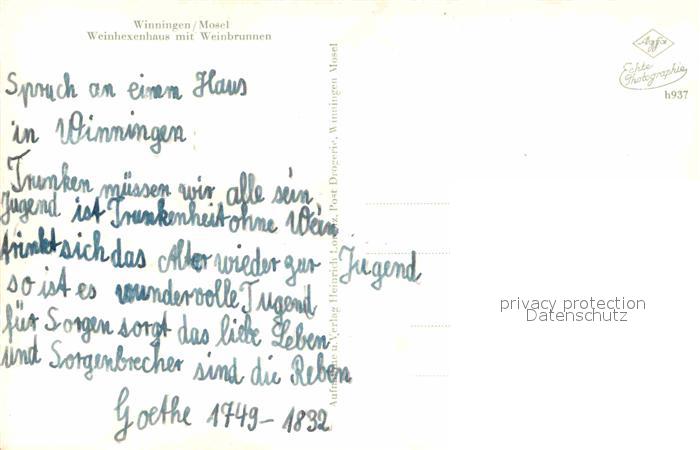 Winningen/Mosel
Weinhexenhaus mit Weinbrunnen
Spruch an einem Haus
in Winningen
Trunken müssen wir alle sein
Jugend ist Trunkenheit ohne Wein
trinkt sich das Alter wieder zur Jugend
so ist es wundervolle Tugend
für Sorgen sorgt das liebe Leben
und Sorgenbrecher sind die Reben
Goethe 1749-1832
Aufnahme u. Verlag Heinrich Lorenz, Post Drogerie, Winningen Mosel
Agfa
Echte
Photographie
h937
privacy protection
Datenschutz